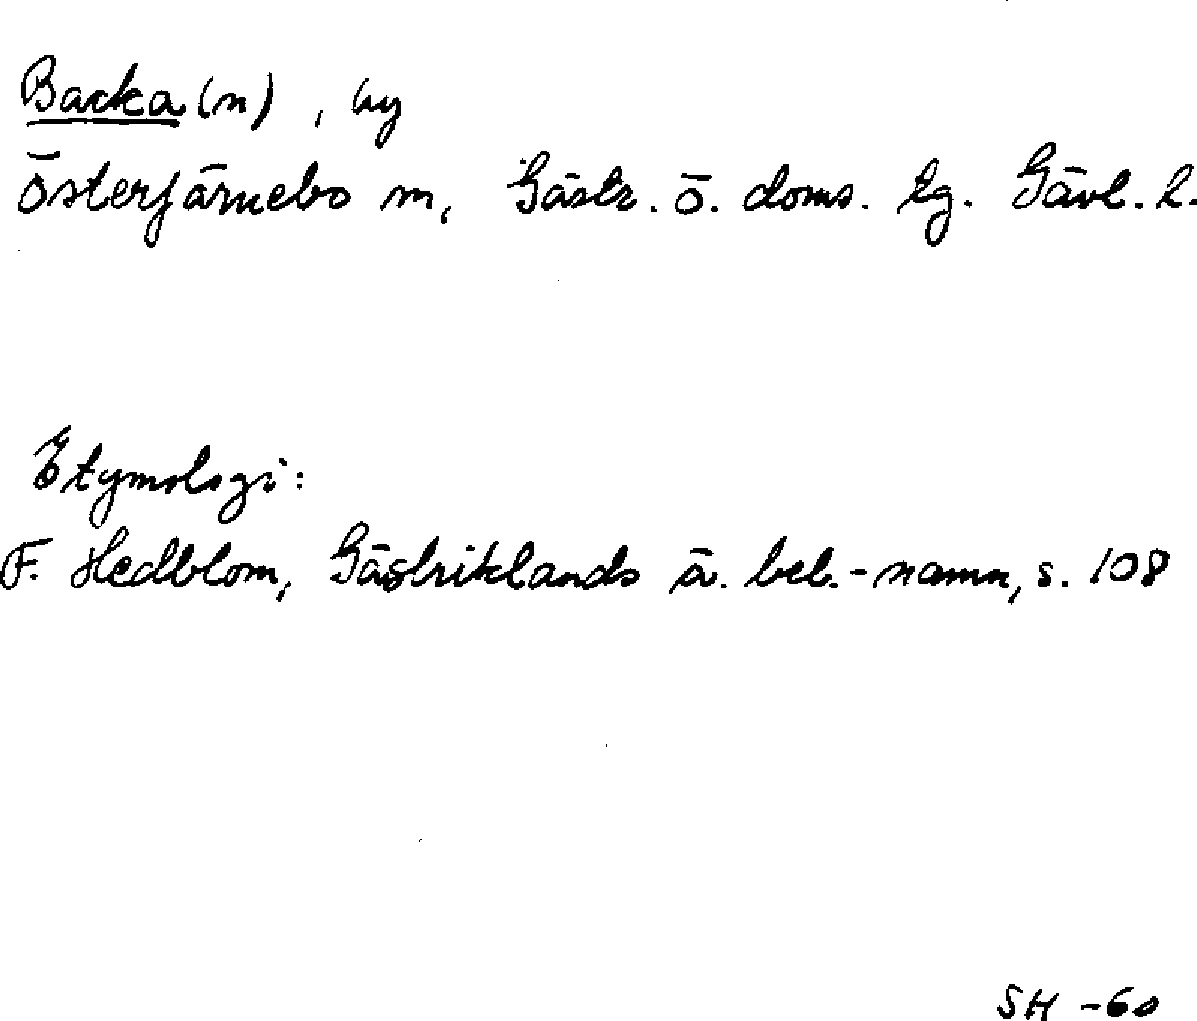 Backa (n), by
Österfärnebo sn, Gästr. ö. doms. tg. Gävl. l.
Etymologi:
F. Hedblom, Gästriklands ä. beb.-namn, s. 108
SH -60